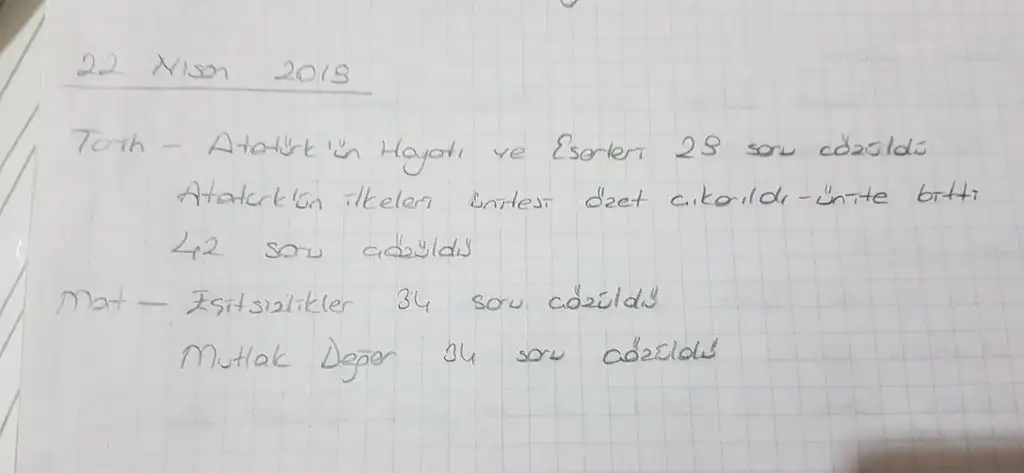 22 Nisan 2019
Tarih - Atatürk'ün Hayatı ve Eserleri 29 soru çözüldü
Atatürk'ün ilkeleri ünitesi özet çıkarıldı - ünite bitti
42 soru çözüldü
Mat - Eşitsizlikler 34 soru çözüldü
Mutlak Değer 34 soru çözüldü